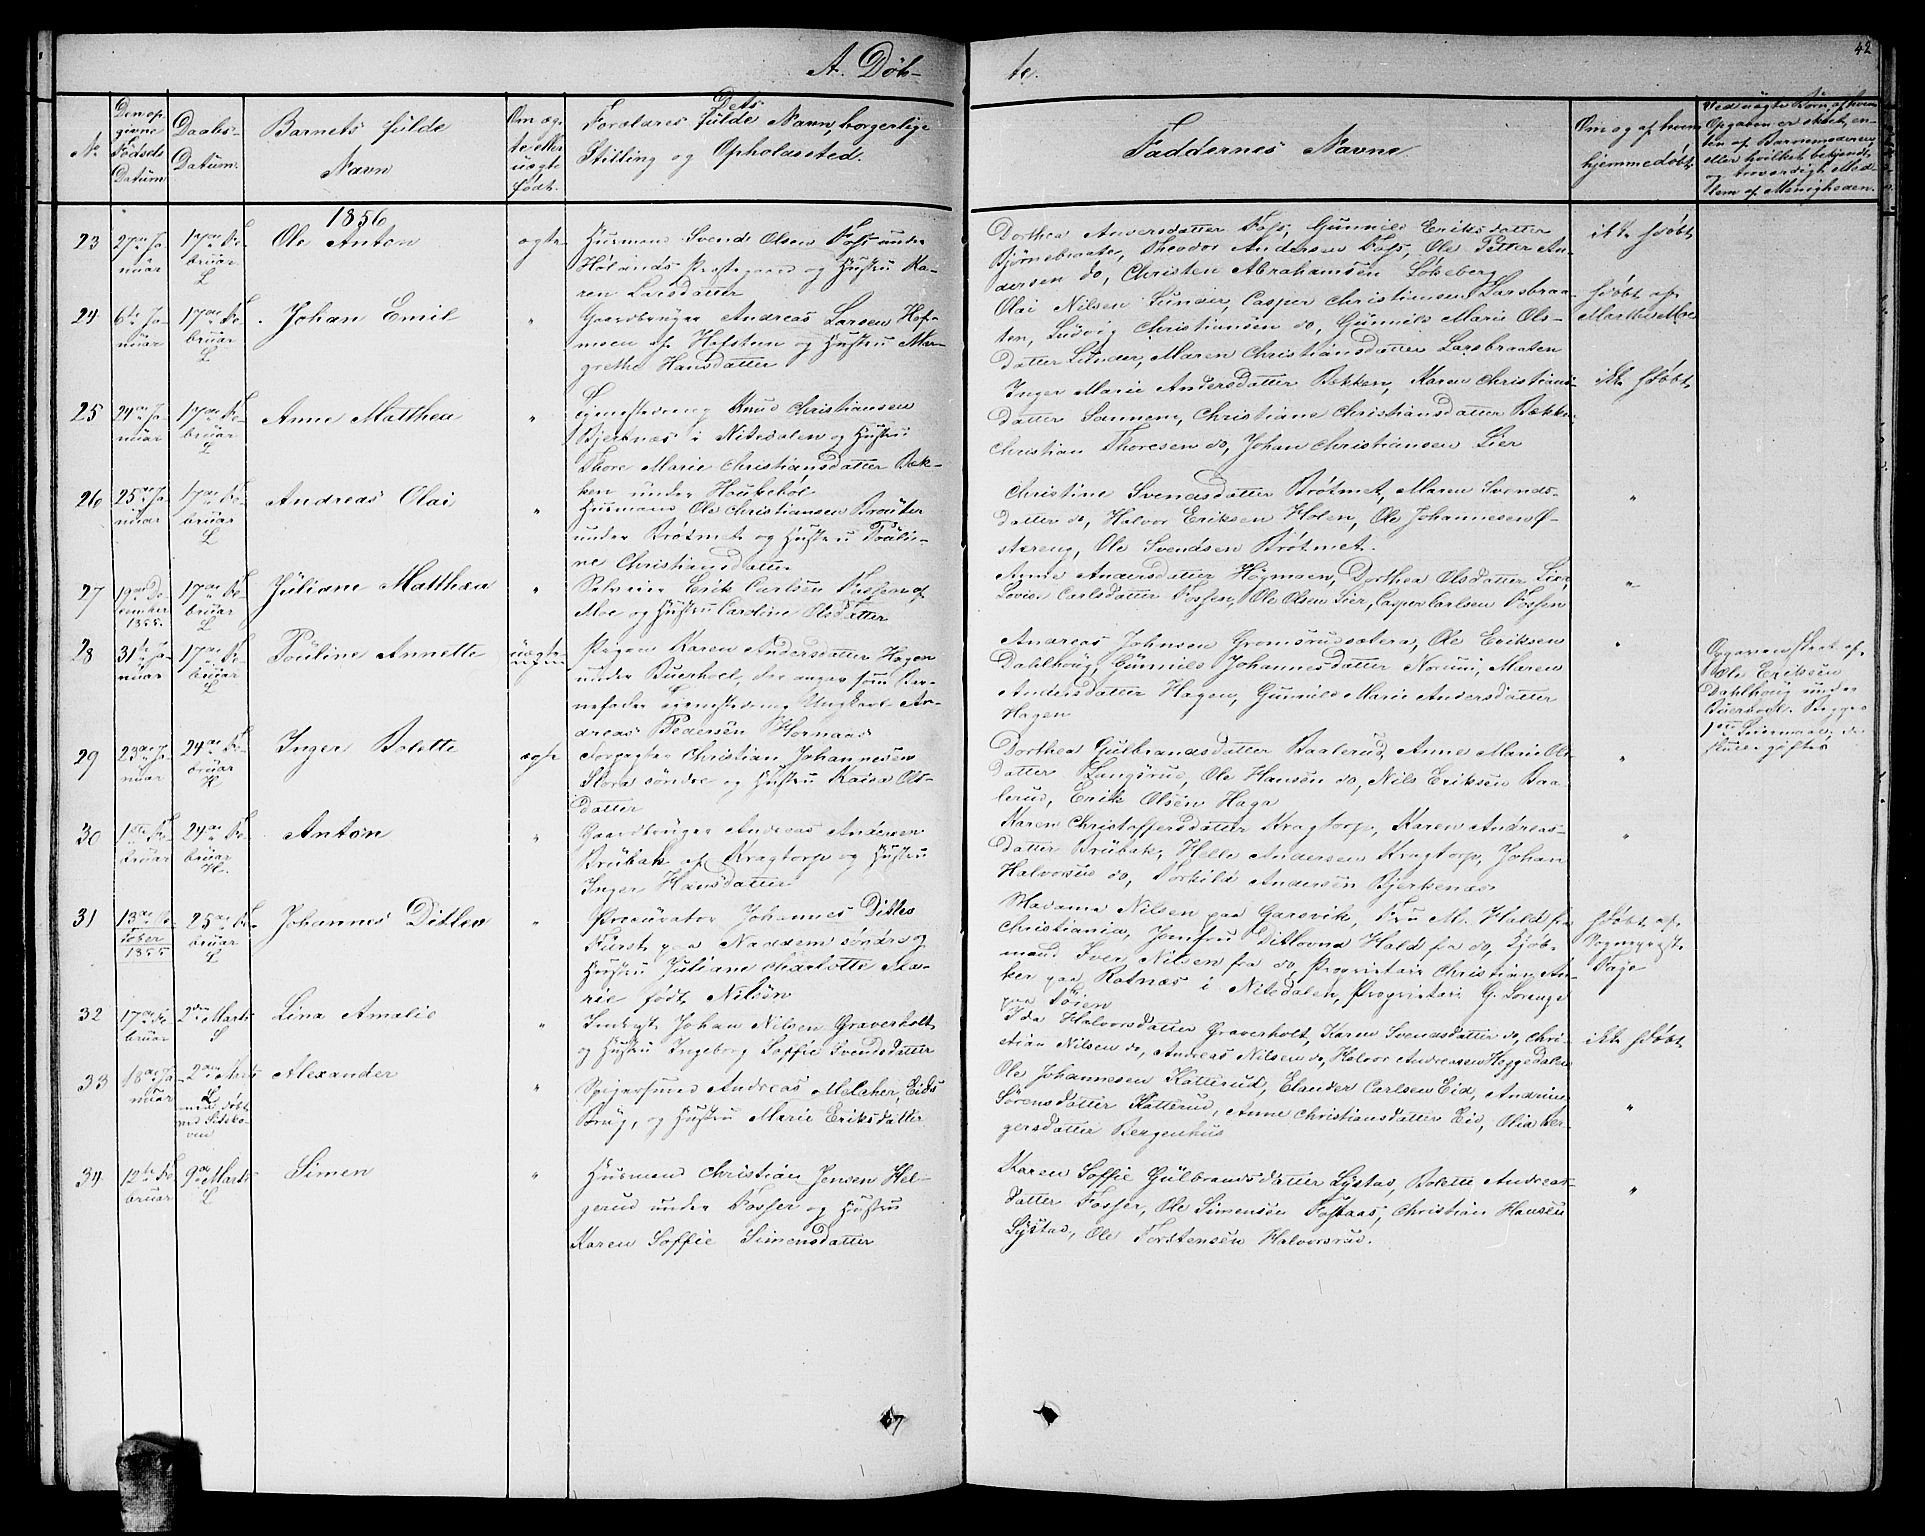 A. Døb-
te.
42
No
Den op-
givne
Fødsels
Datum
Daabs-
Datum.
Barnets fulde
Navn
Om æg-
te eller
uægte
født.
Dets
Forældres fulde Navn, borgerlige
Stilling og Opholdssted.
Faddernes Navne.
Om og af hvem
hjemmedøbt.
Ved uægte Børn af hvem
Opgaven er skeet, en-
ten af Barnemoderen,
eller hvilket bekjendt
og troværdigt Med-
lem af Menigheden.
1856
23
27de Ja-
nuar
17de Fe-
bruar
L
Ole Anton
ægte
Husmand Svend Olsen Foss under
Hølands Præstegaard og Hustru Ka-
ren Larsdatter
Dorthea Andersdatter Foss, Gunnild Eriksdatter
Bjørnebraate, Theodor Andersen Foss, Ole Petter An-
dersen do, Christen Abrahamsen Sokeberg
ikke hjdøbt
24
6te Ja-
nuar
17de Fe-
bruar
L
Johan Emil
"
Gaardbruger Andreas Larsen Hof-
moen af Hofsten og Hustru Mar-
grethe Hansdatter
Olai Nilsen Lunder, Casper Christiansen Larsbraa-
ten, Ludvig Christiansen do, Gunnild Marie Ols-
datter Lunder, Maren Christiansdatter Larsbraaten
hjdøbt af
Marthe Moe
25
24de Ja-
nuar
17de Fe-
bruar
L
Anne Matthea
"
Logmesteding Knud Christiansen
Bjertnæs i Nitedalen og Hustru
Thore Marie Christiansdatter Bek-
ken under Haukebøl
Inger Marie Andersdatter Bekken, Karen Christians-
datter Sannem, Christiane Christiansdatter Bekken
Christian Thoresen do, Johan Christiansen Lier
ikke hjdøbt
26
25de Ja-
nuar
17de Fe-
bruar
L
Andreas Olai
"
Husmand Ole Christiansen Brøuter
under Brøtmet og Hustru Pauli-
ne Christiansdatter
Christine Svendsdatter Brøtmet, Maren Svends-
datter do, Halvor Eriksen Holen, Ole Johannesen Ø-
stereng, Ole Svendsen Brøtmet.
"
27
19de De-
cember
1855.
17de Fe-
bruar
L
Juliane Matthea
"
Selveier Erik Carlsen Fossen af
Moe og Hustru Caroline Olsdatter
Anne Andersdatter Høgmoen, Dorthea Olsdatter Lier,
Lovise Carlsdatter Fossen, Ole Olsen Lier, Casper Carlsen Fossen
"
28
31te Ja-
nuar
17de Fe-
bruar
L
Pouline Annette
uægte
Pigen Karen Andersdatter Hagen
under Buerhoel, der angav som Bar-
nefader Logmesteding Ungkarl An-
dreas Pedersen Hornaas
Andreas Johnsen Gromsrudsætera, Ole Eriksen
Dahlhoug, Gunnild Johannesdatter Norum, Maren
Andersdatter Hagen, Gunnild Marie Andersdatter
Hagen
"
Opgaven skeet af
Ole Eriksen
Dahlhoug under
Buerhoel. Begges
1ste Leiermaal, de
skulle giftes
29
23de Ja-
nuar
24de Fe-
bruar
H
Inger Bolette
ægte
Forpagter Christian Johannesen
Stora søndre og Hustru Kaisa Ols-
datter
Dorthea Gulbrandsdatter Baalerud, Anne Marie Ols-
datter Langsrud, Ole Hansen do, Nils Eriksen Baa-
lerud, Erik Olsen Haga
"
30
1ste Fe-
bruar
24de Fe-
bruar
H.
Anton
"
Gaardbruger Andreas Andersen
Brubak af Kragtorp og Hustru
Inger Hansdatter
Karen Christoffersdatter Kragtorp, Karen Andreas-
datter Brubak, Helle Andersen Kragtorp, Johan
Halvorsen do, Torkild Andersen Bjerkenæs
"
31
13de Oc-
tober
1855
25de Fe-
bruar
L
Johannes Ditlev
"
Procurator Johannes Ditlev
Fürst paa Naddem søndre og
Hustru Juliane Charlotte Ma-
rie født Nilsen
Madame Nilsen paa Garsvik, Fru M. Hald fra
Christiania, Jomfru Ditlovna Hald fra do, Kjøb-
mand Iver Nilsen fra do, Proprietair Christian An-
ker paa Rotnæs i Nitedalen, Proprietair G. Lorange
paa Toien
hjdøbt af
Sognepræst
Faye
32
17de Fe-
bruar
2den Marts
S
Lina Amalie
"
Inderst Johan Nilsen Graverholt
og Hustru Ingeborg Soffie Svendsdatter
Ida Halvorsdatter Graverholt, Karen Svendsdatter do, Chri-
stian Nilsen do, Andreas Nilsen do, Halvor Andreassen Heggedalen
ikke hjdøbt
33
18de Ja-
nuar
2den Marts
L
men døbt
ved Sidsko-
ven
Alexander
"
Spigersmed Andreas Melcher, Eids
Brug, og Hustru Marie Eriksdatter
Ole Johannesen Katterud, Elander Carlsen Eid, Andrine
Sørensdatter Katterud, Anne Christiansdatter Eid, Olia Ber-
gersdatter Bergenhus
"
34
12te Fe-
bruar
9de Marts
L
Simen
"
Husmand Christian Jensen Hel-
gerud under Fosser og Hustru
Karen Soffie Simensdatter
Karen Soffie Gulbrandsdatter Lystad, Bolette Andreas-
datter Fosser, Ole Simensen Fostaas, Christian Hansen
Lystad, Ole Torstensen Halvorsrud.
"